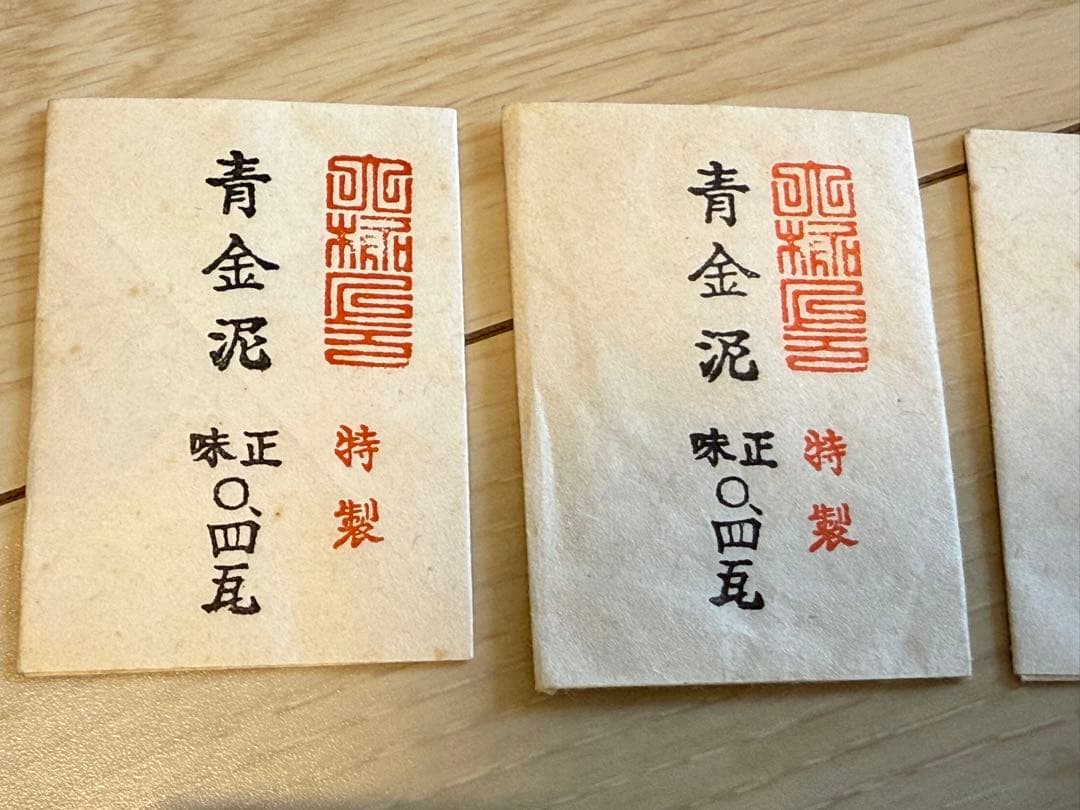 特製
青金泥 正味〇、四瓦
特製
青金泥 正味〇、四瓦